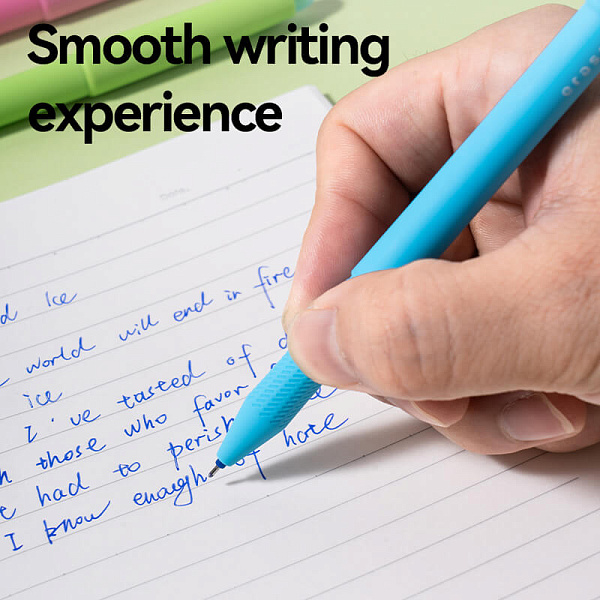 Smooth writing
experience
d Ice
world will end in fire
ice
I've tasted of d
those who favor
had to perish
I know enough of hate